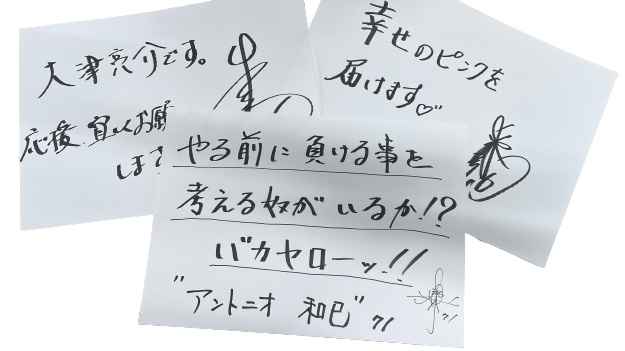 大津亮介です。
応援 宜しくお願
しま
幸せのピンクを
届けます♡
やる前に 負ける事を
考える奴が いるか!?
バカヤローッ!!
"アントニオ 和巳" 71
71